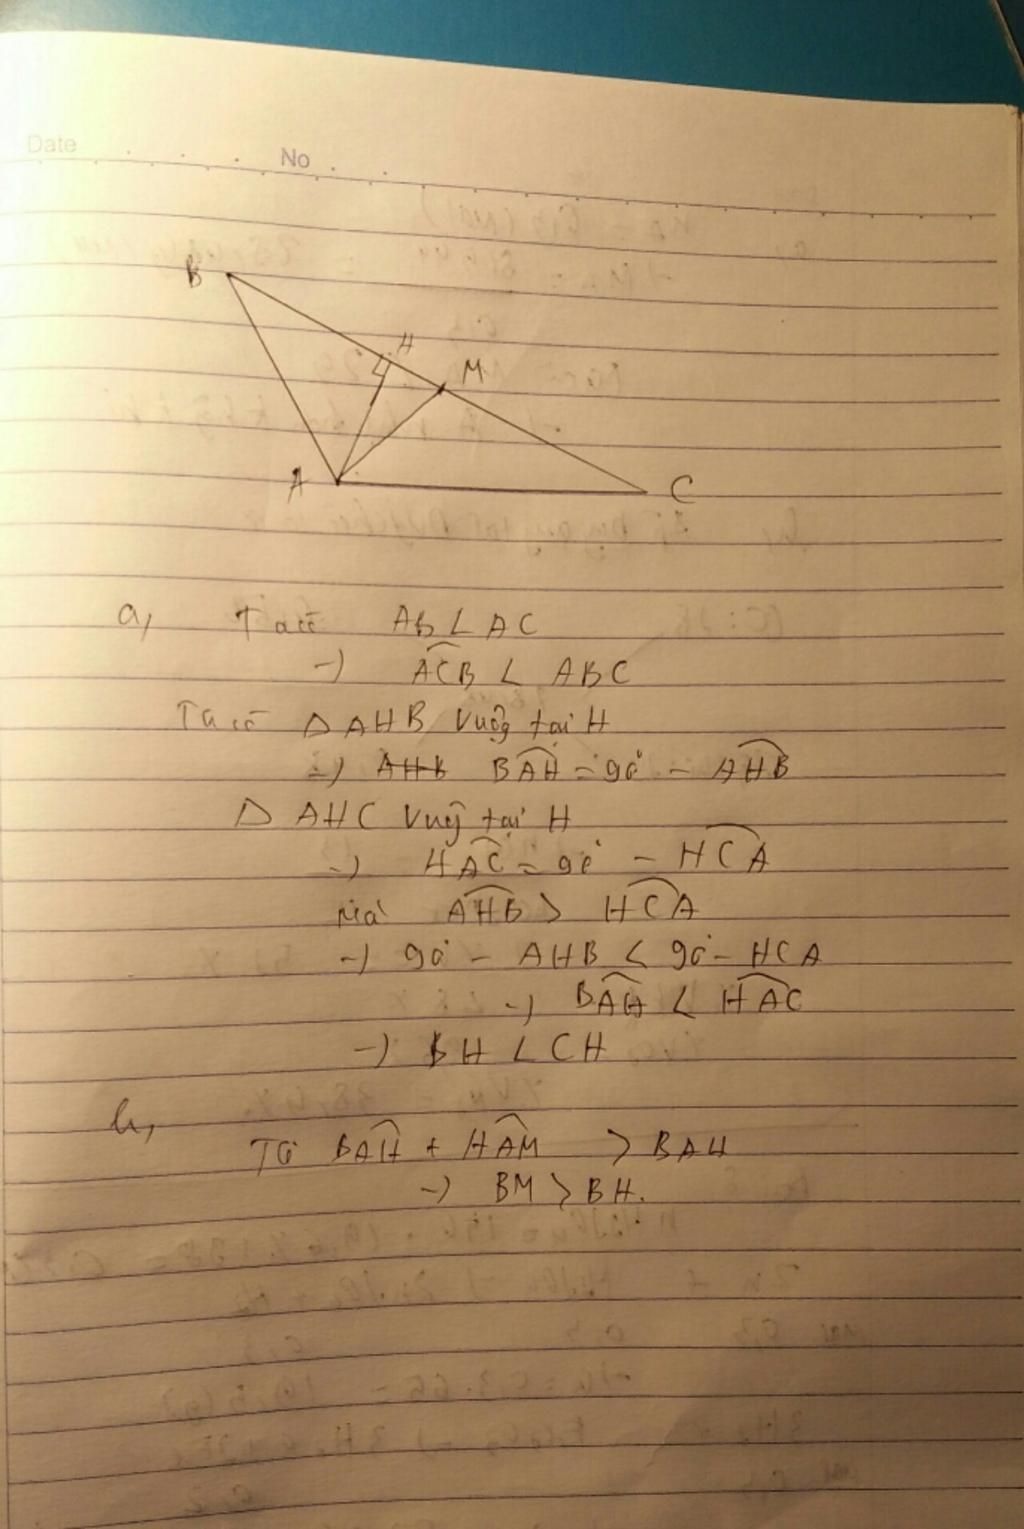 Date
No
B
H
M
A
C
a, Ta có AB < AC
→) ACB < ABC
Ta có Δ AHB vuông tại H
=) AHB BAH = 90° - AHB
Δ AHC vuông tại H
→) HAC = 90° - HCA
mà AHB > HCA
→) 90° - AHB < 90° - HCA
→) BAH < HAC
→) BH < CH
b,
Từ BAH + HAM > BAH
→) BM > BH.